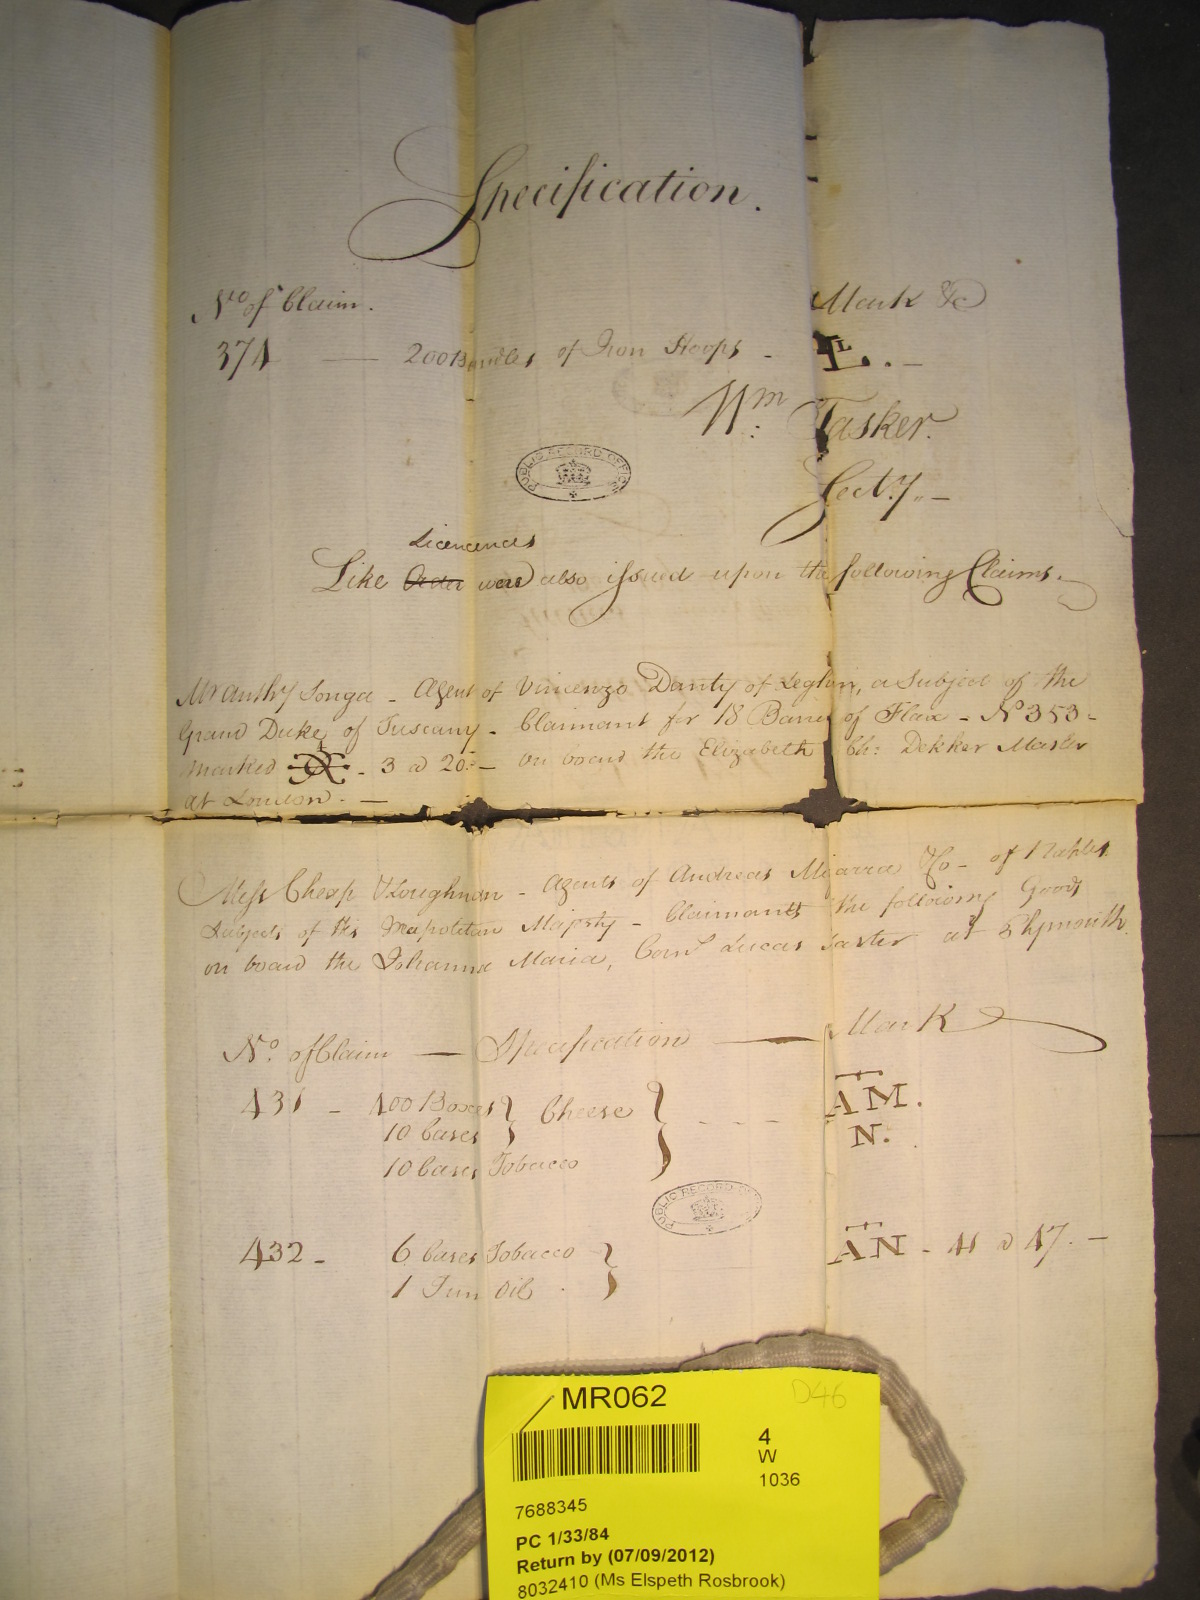 Specification.
No of Claim. Mark &c
374 — 200 Bundles of Iron Hoops - L.-
Wm: Tasker.
Secty.-
Licences
Like Order were also issued upon the following Claims.
Mr Anthy Songa - Agent of Vincenzo Danty of Leghn, a Subject of the
Grand Duke of Tuscany - Claimant for 18 of Flax - No 353 -
marked - 3 a 20:- on board the Elizabeth Ch: Dekker Master
at London. -
Messrs Cheap & Loughnan - Agents of Andreas & Co - of Naples
Subjects of His Neapolitan Majesty - Claimants the following Goods
on board the Johanna Maria, Corns Lucas Master at Plymouth.
No. of Claim — Specification — Mark
431 - 400 Boxes } Cheese } - - - AM.
10 Cases N.
10 Cases Tobacco
432 - 6 Cases Tobacco } AN - 41 a 47. -
1 Tun Oil
PUBLIC RECORD OFFICE
PUBLIC RECORD OFFICE
MR062
D46
4
W
1036
7688345
PC 1/33/84
Return by (07/09/2012)
8032410 (Ms Elspeth Rosbrook)